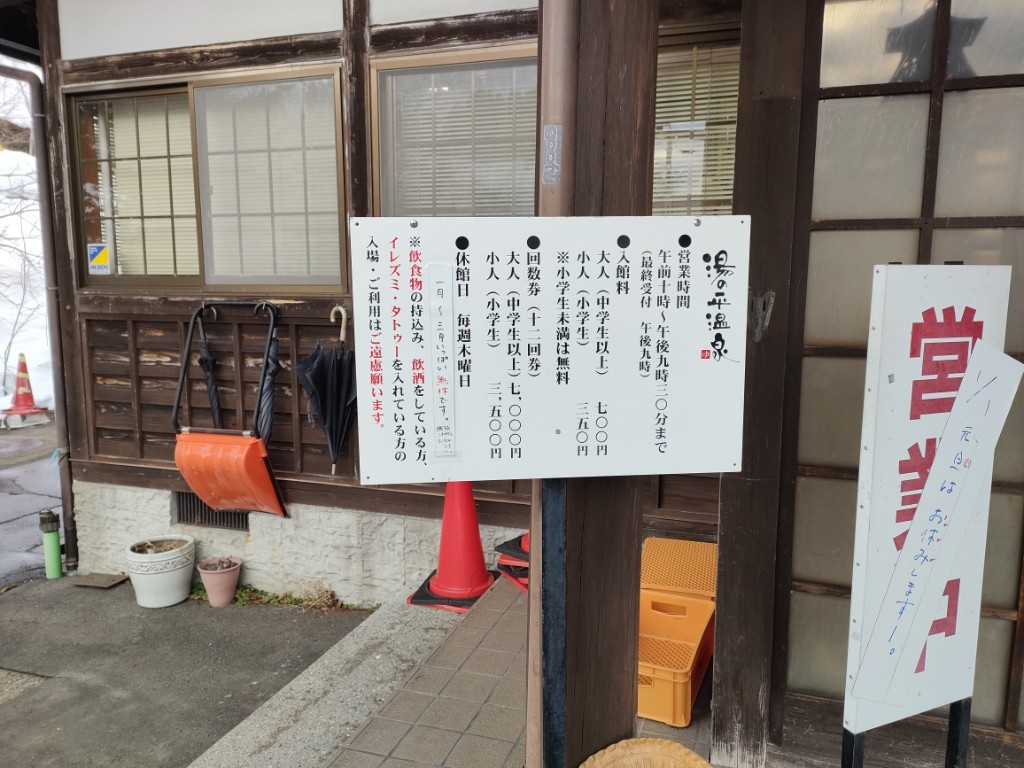 湯の平温泉
●営業時間
午前十時～午後九時三〇分まで
（最終受付　午後九時）
●入館料
大人（中学生以上）　七〇〇円
小人（小学生）　三五〇円
※小学生未満は無料
●回数券（十二回券）
大人（中学生以上）七、〇〇〇円
小人（小学生）　三、五〇〇円
●休館日　毎週木曜日
一月～三月いっぱい無休です。
※飲食物の持込み、飲酒をしている方、
イレズミ・タトゥーを入れている方の
入場・ご利用はご遠慮願います。
営業中
1/1 元旦はお休みします！。